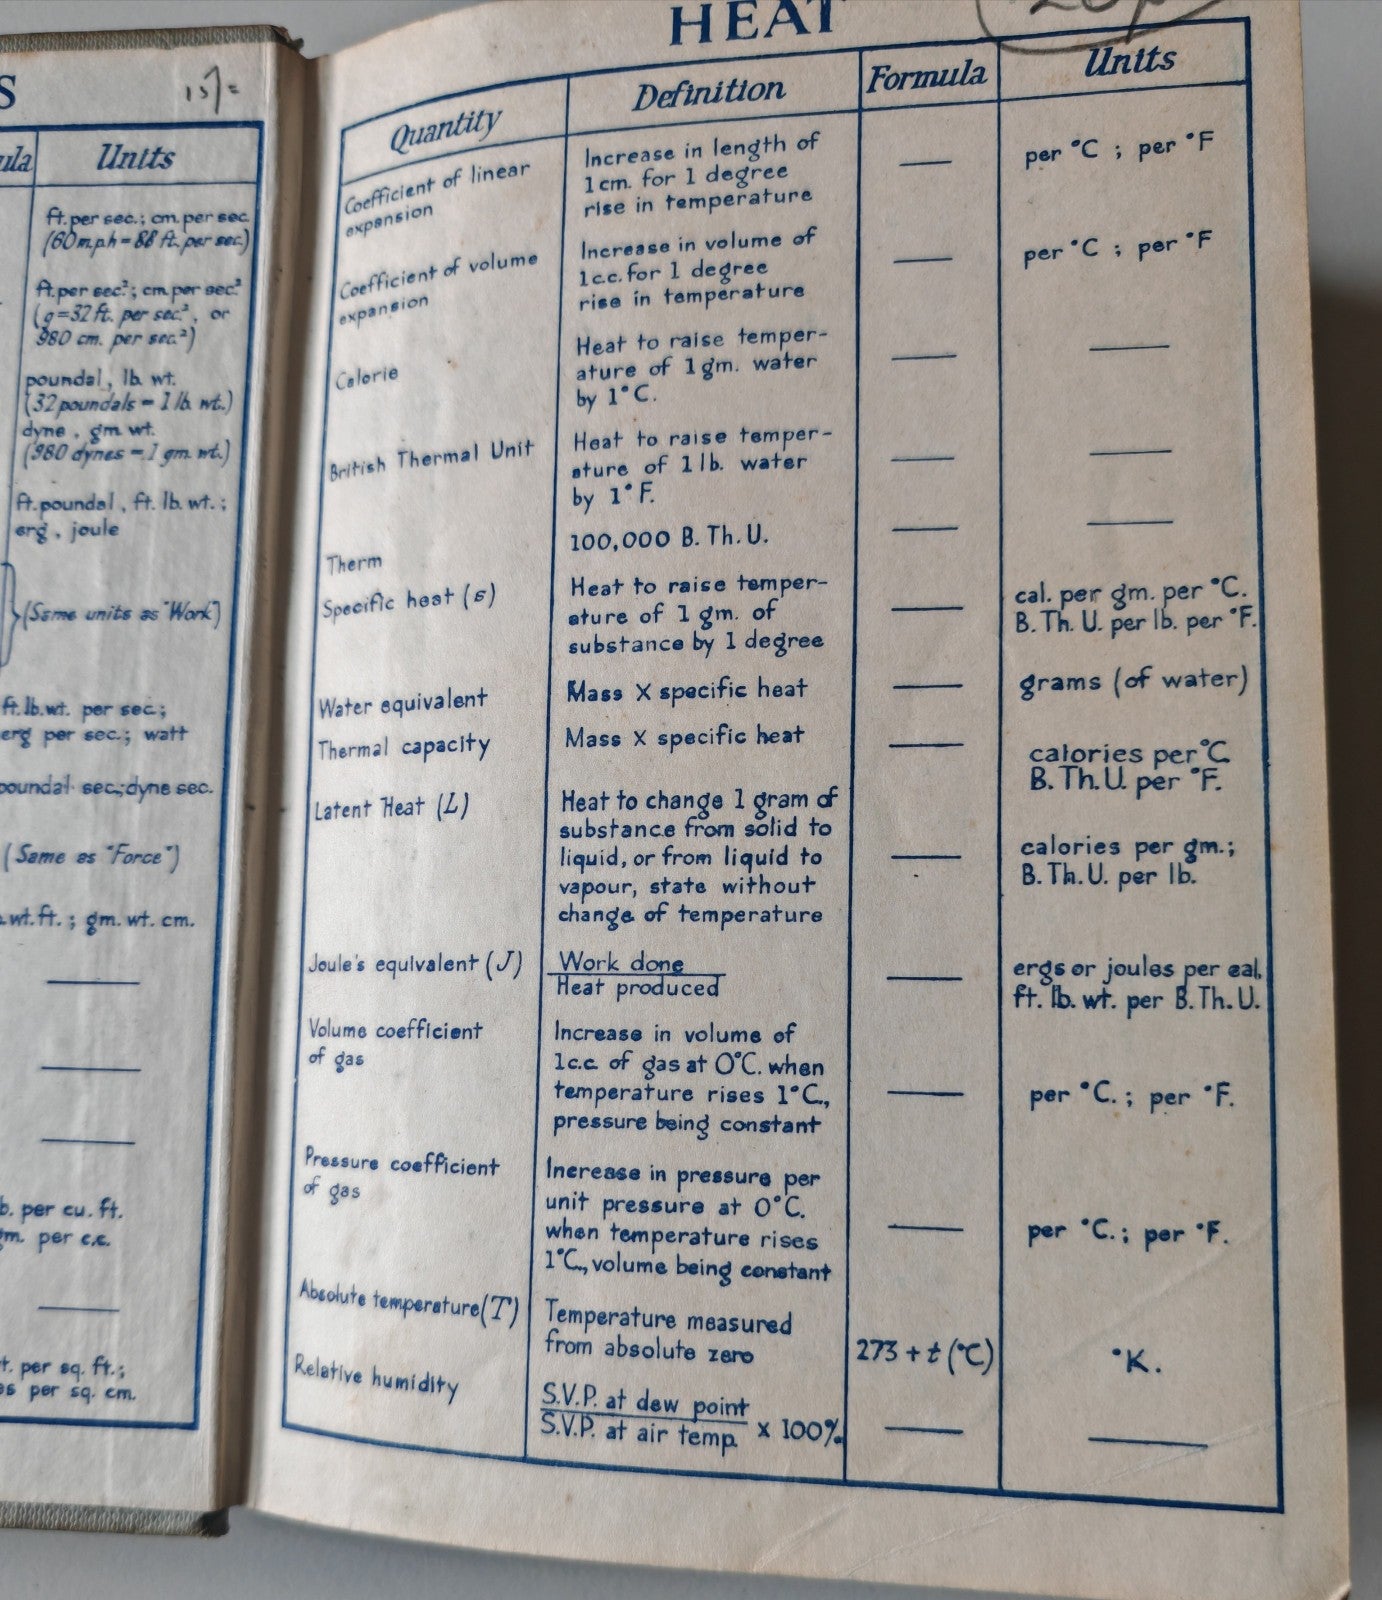 S
15/=
ula
Units
ft. per sec.; cm. per sec.
(60 m.p.h = 88 ft. per sec.)
ft. per sec.²; cm. per sec.²
(g=32 ft. per sec.², or
980 cm. per sec.²)
poundal, lb. wt.
(32 poundals = 1 lb. wt.)
dyne, gm. wt.
(980 dynes = 1 gm. wt.)
ft. poundal, ft. lb. wt.;
erg, joule
(Same units as "Work")
ft. lb. wt. per sec.;
erg per sec.; watt
poundal sec.; dyne sec.
(Same as "Force")
wt. ft.; gm. wt. cm.
b. per cu. ft.
gm. per c.c.
t. per sq. ft.;
es per sq. cm.
HEAT
Quantity
Definition
Formula
Units
Coefficient of linear
expansion
Increase in length of
1 cm. for 1 degree
rise in temperature
—
per °C ; per °F
Coefficient of volume
expansion
Increase in volume of
1 c.c. for 1 degree
rise in temperature
—
per °C ; per °F
Calorie
Heat to raise temper-
ature of 1 gm. water
by 1°C.
—
—
British Thermal Unit
Heat to raise temper-
ature of 1 lb. water
by 1°F.
—
—
Therm
100,000 B.Th.U.
—
—
Specific heat (s)
Heat to raise temper-
ature of 1 gm. of
substance by 1 degree
—
cal. per gm. per °C.
B.Th.U. per lb. per °F.
Water equivalent
Mass X specific heat
—
grams (of water)
Thermal capacity
Mass X specific heat
—
calories per °C
B.Th.U. per °F.
Latent Heat (L)
Heat to change 1 gram of
substance from solid to
liquid, or from liquid to
vapour, state without
change of temperature
—
calories per gm.;
B.Th.U. per lb.
Joule's equivalent (J)
Work done
Heat produced
—
ergs or joules per cal.
ft. lb. wt. per B.Th.U.
Volume coefficient
of gas
Increase in volume of
1 c.c. of gas at 0°C. when
temperature rises 1°C.,
pressure being constant
—
per °C. ; per °F.
Pressure coefficient
of gas
Increase in pressure per
unit pressure at 0°C.
when temperature rises
1°C., volume being constant
—
per °C. ; per °F.
Absolute temperature (T)
Temperature measured
from absolute zero
273 + t (°C)
°K.
Relative humidity
S.V.P. at dew point
S.V.P. at air temp. x 100%
—
—